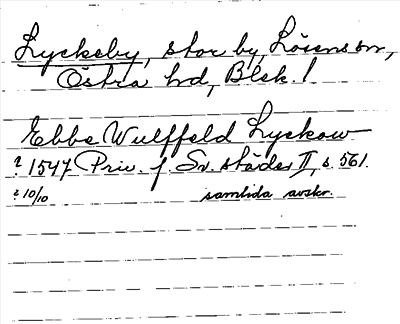 Lyckeby, stor by, Lösens sn,
Östra hd, Blek. !
Ebbe Wulffeld Lyckow
? 1547 Priv. f. Sv. städer II, s. 561.
? 10/10 samtida avskr.